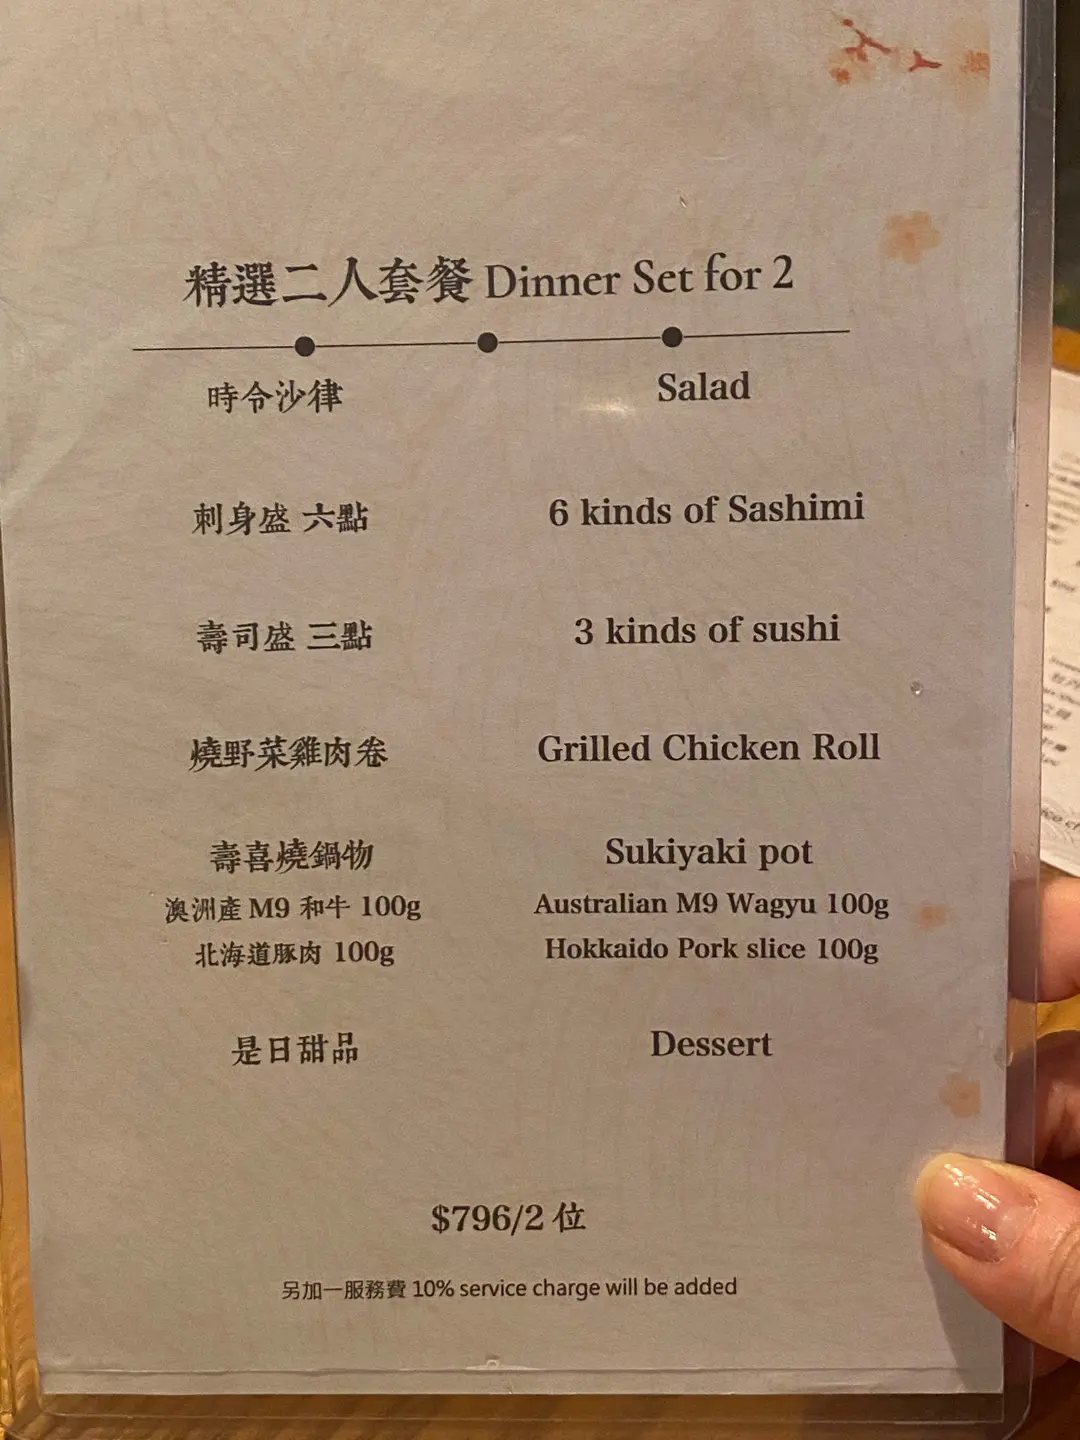 精選二人套餐 Dinner Set for 2
時令沙律 Salad
刺身盛 六點 6 kinds of Sashimi
壽司盛 三點 3 kinds of sushi
燒野菜雞肉卷 Grilled Chicken Roll
壽喜燒鍋物 Sukiyaki pot
澳洲產 M9 和牛 100g Australian M9 Wagyu 100g
北海道豚肉 100g Hokkaido Pork slice 100g
是日甜品 Dessert
$796/2 位
另加一服務費 10% service charge will be added